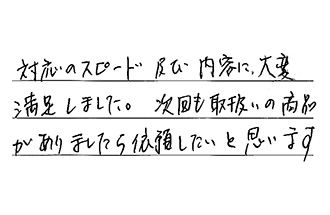 対応のスピード及び内容に、大変
満足しました。次回も取扱いの商品
がありましたら依頼したいと思います